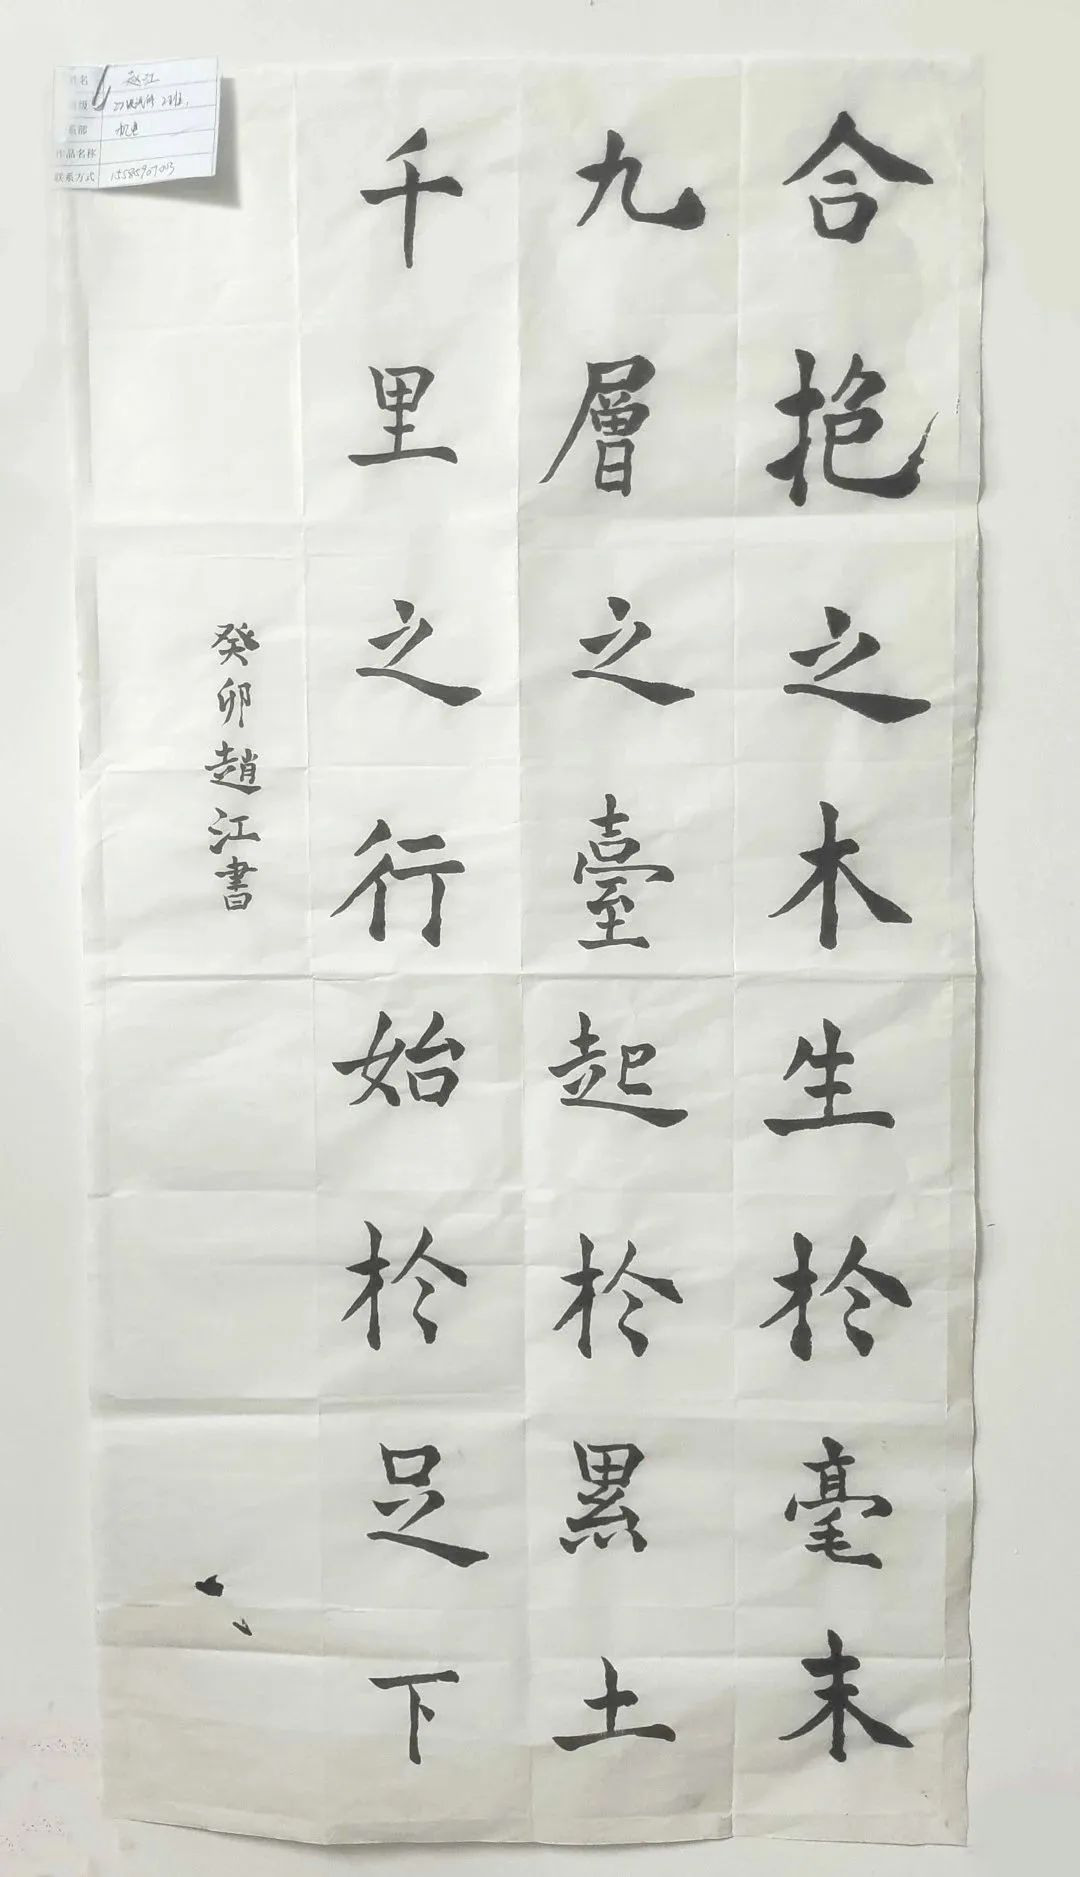 合抱之木生於毫末
九層之臺起於累土
千里之行始於足下
癸卯趙江書
姓名 赵江
班级
系部 机电
作品名称
联系方式